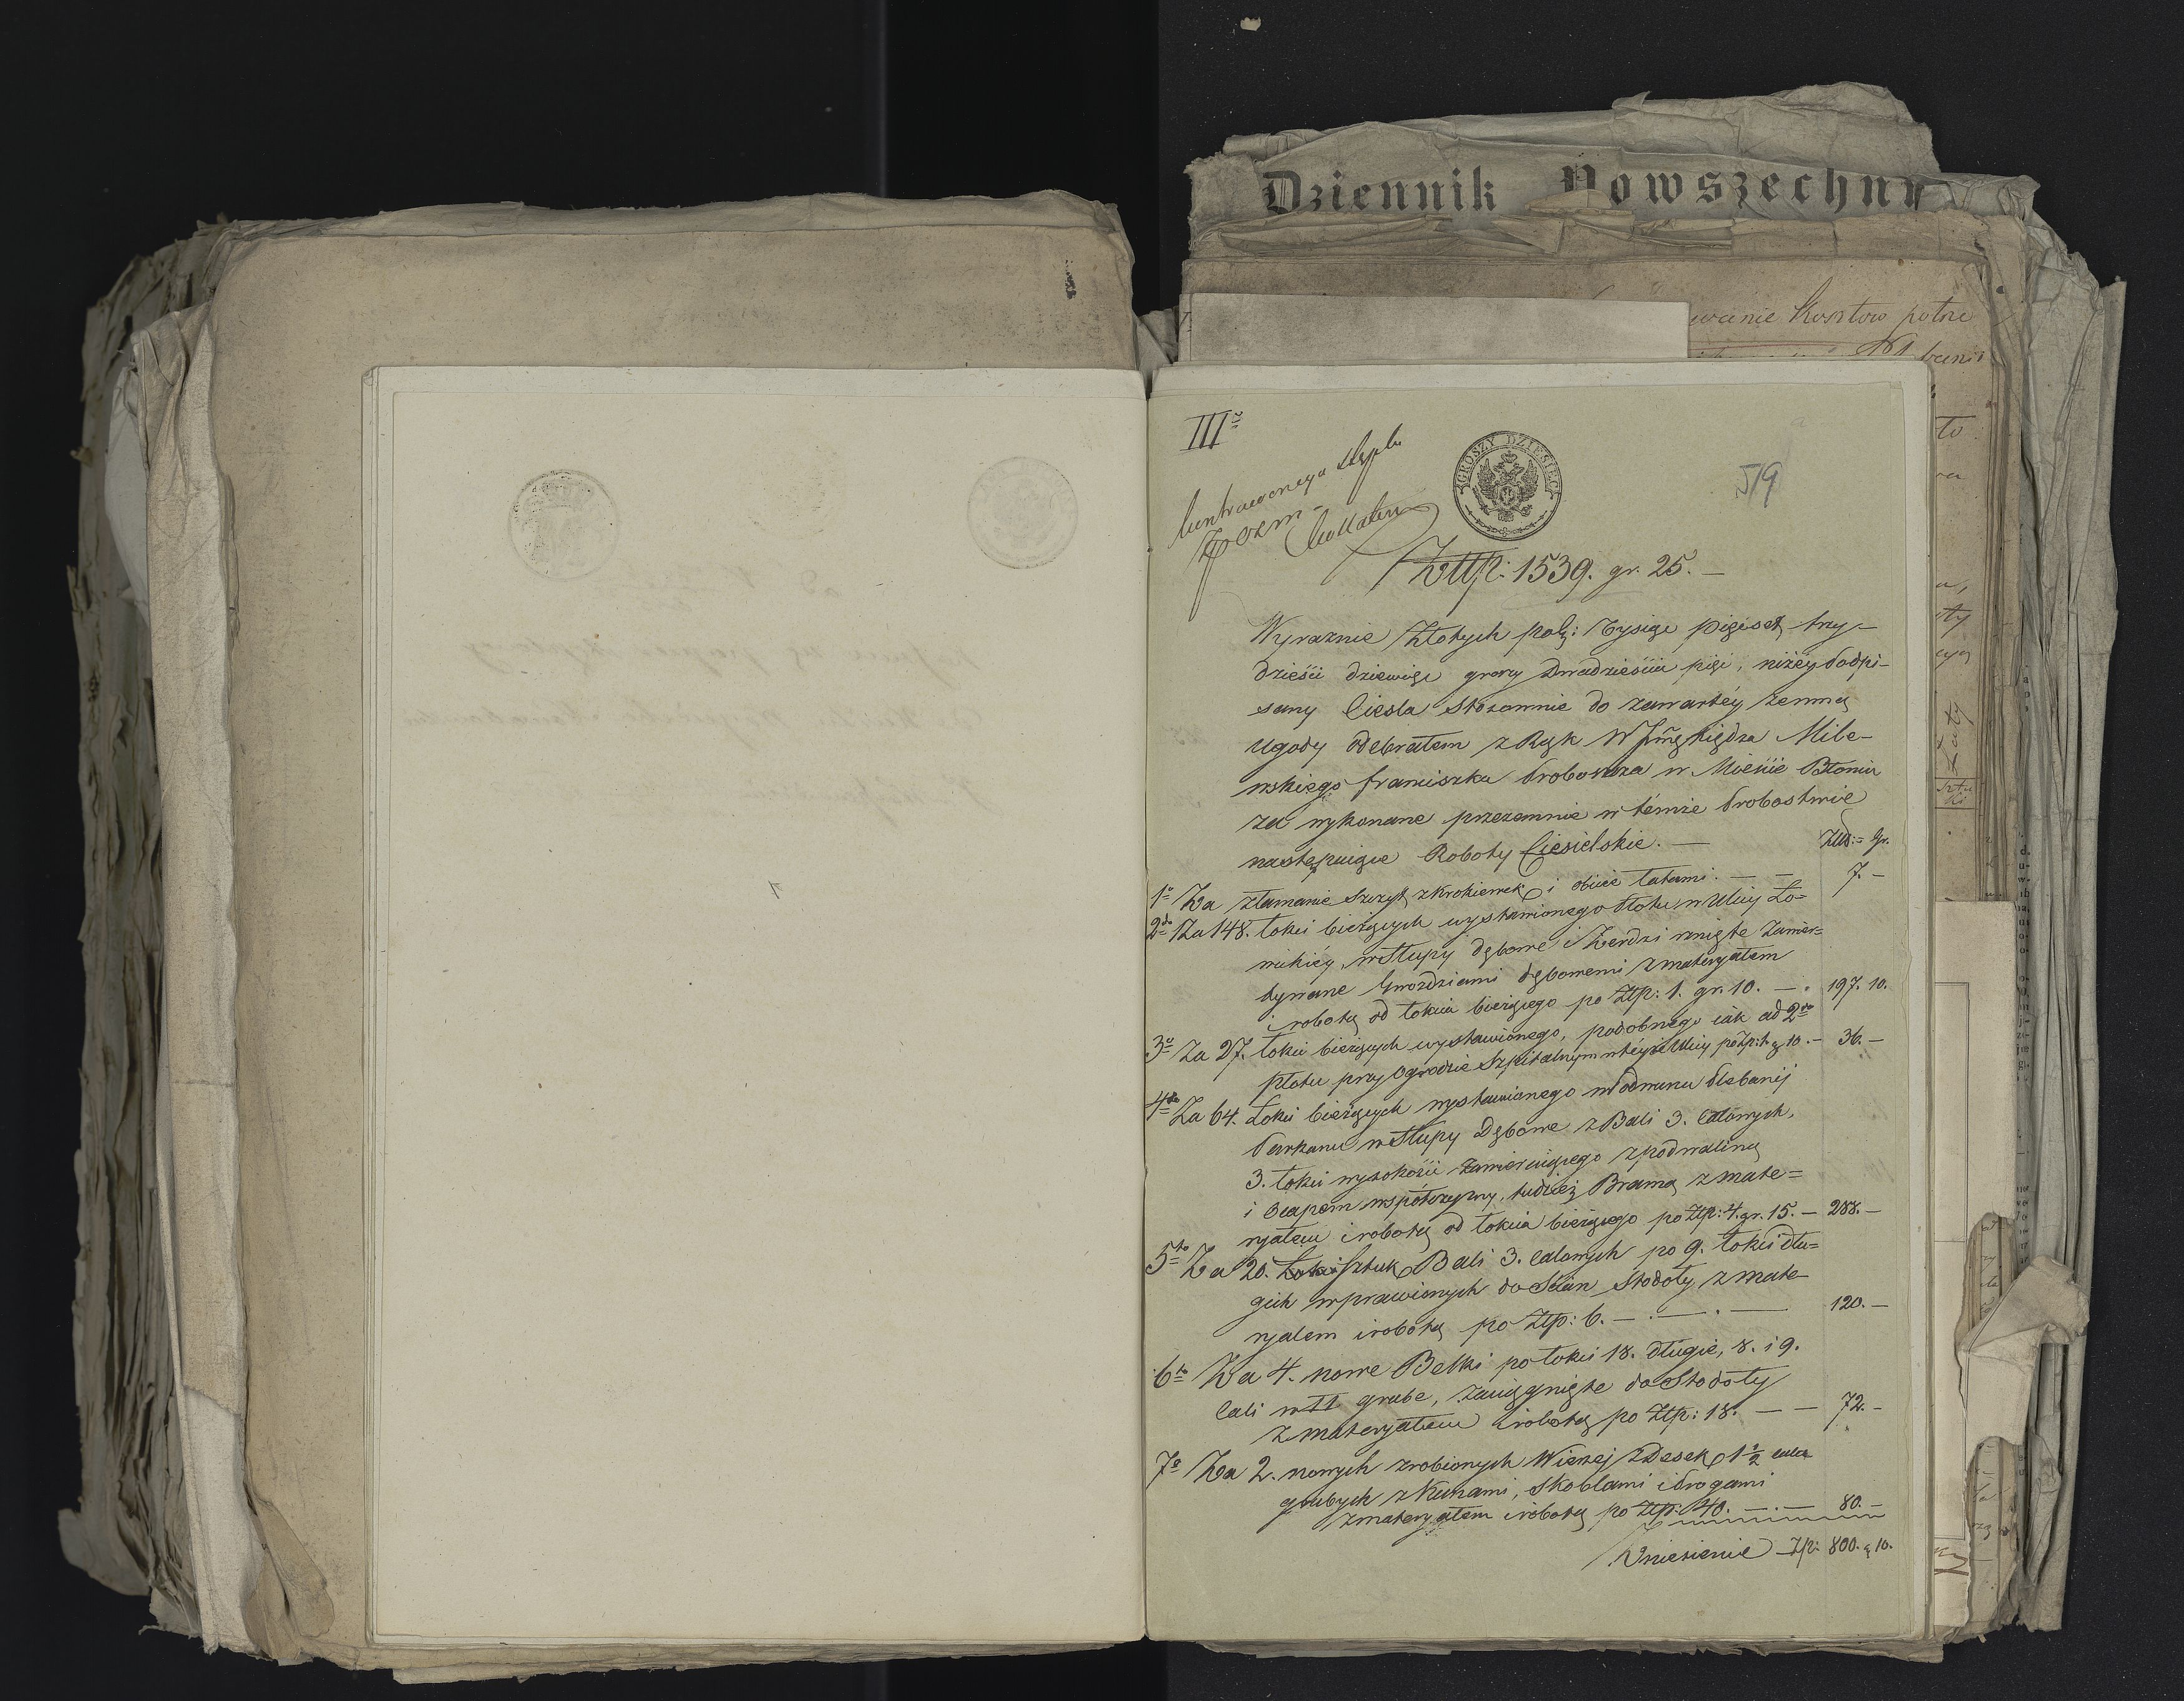 Dziennik Powszechny
wanie Kosztow potrze
IIIo
GROSZY DZIESIĘĆ
519
Złłp: 1539. gr. 25. —
Wyraznie Złotych pols: Tysiąc pięćset trzy-
dzieści dziewięć groszy dwadzieścia pięć, niżéy Podpi-
sany Cieśla stosownie do zawartéy zemną
Ugody odebrałem z Rąk WJmę Xiędza Mile-
wskiego Franciszka Proboszcza w Mieście Błoniu
za wykonane przezemnie w témże Probostwie
następuiące Roboty Ciesielskie. —
Złłp: = Gr.
1o Za złamanie Szczytu z krokiewek i obicie łatami. — — 7. —
2do Za 148. łokci bieżących wystawionego Płotu w Ulicy Ło-
wickiéy, w Słupy dębowe i Żerdzi rznięte zamier=
dywane Gwozdziami dębowemi z materyałem
i robotą od łokcia bieżącego po Złp: 1. gr. 10. — 197. 10.
3o Za 27. łokci bieżących wystawionego, podobnego iak ad 2do
płotu przy Ogrodzie Szpitalnym w téyże Ulicy po Złp: 1 g 10. — 36. —
4to Za 64. Łokci bieżących wystawionego w Podwurzu Plebanij
Parkanu w Słupy Dębowe z Bali 3. calowych,
3. łokci wysokości zamieruiącego z podwaliną
i Ocapem wspótrzyny, tudzież Bramą z mate=
ryałem i robotą od łokcia bieżącego po Złp: 4. gr. 15. — 288. —
5to Za 20. Sztuk Bali 3. calowych po 9. łokci dłu=
gich wprawionych do Ścian Stodoły, z mate-
ryalem i robotą po Złp: 6. — . — . — 120. —
6to Za 4. nowe Belki po łokci 18. długie, 8. i 9.
Cali w □ grube, zaciągnięte do Stodoły
z materyałem i robotą po Złp: 18. — — 72. —
7o Za 2. nowych zrobionych Wierzei z Desek 1 1/2 cala
grubych z Kunami, Skoblami i Drogami
z materyałem i robotą po Złp: 40. — . — 80. —
Wniesienie Złp: 800. g 10.